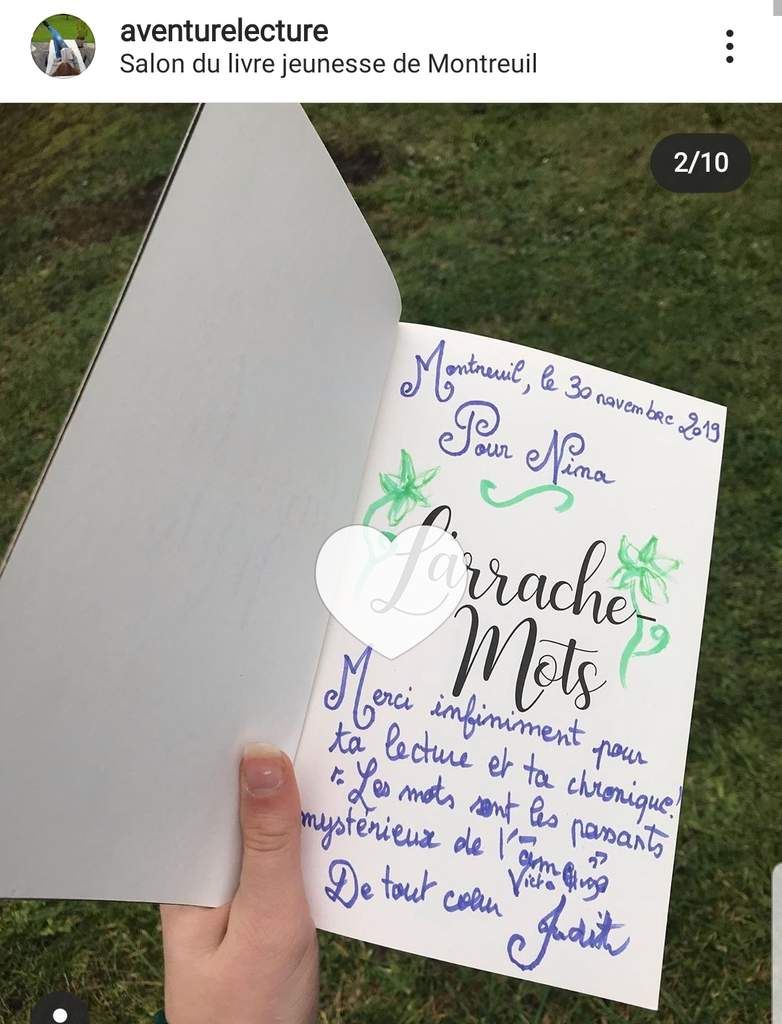 aventurelecture
Salon du livre jeunesse de Montreuil
2/10
Montreuil, le 30 novembre 2019
Pour Nina
L'arrache-
Mots
Merci infiniment pour
ta lecture et ta chronique!
"Les mots sont les passants
mystérieux de l'âme"
Victor Hugo
De tout cœur Judith